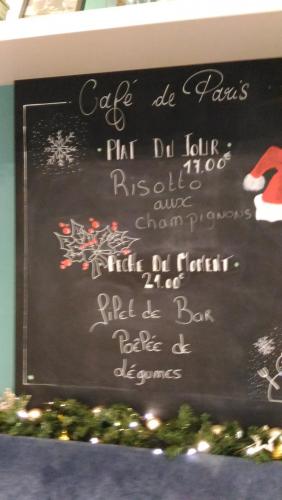 Café de Paris
• Plat Du Jour •
17.00€
Risotto
aux
champignons
Pêche Du Moment •
21.00€
Filet de Bar
Poêlée de
légumes